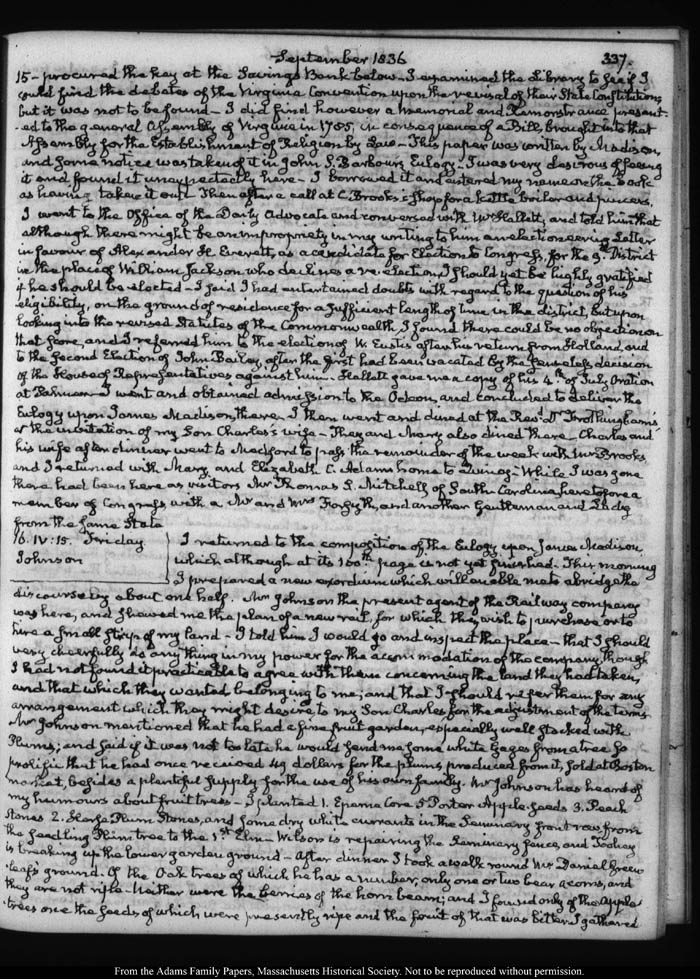 September 1836
337.
15 - procured the key at the Savings Bank below - I examined the Library to see if I
could find the debates of the Virginia Convention upon the revisal of their State Constitution;
but it was not to be found - I did find however a memorial and Remonstrance present-
-ed to the general Assembly of Virginia in 1785, in consequence of a Bill, brought into that
Assembly for the Establishment of Religion by Law - This paper was written by Madison,
and some notice was taken of it in John S. Barbour's Eulogy. I was very desirous of seeing
it and found it unexpectedly here - I borrowed it and entered my name on the book
as having taken it out. Then after a call at C. Brooks's shop for a kettle boiler and pincers,
I went to the Office of the Daily Advocate and conversed with Mr Hallett, and told him that
although there might be an impropriety in my writing to him an electioneering Letter
in favour of Alexander H. Everett, as a candidate for Election to Congress, for the 9th District
in the place of William Jackson who declines a re-election, I should yet be highly gratified
if he should be elected - I said I had entertained doubts with regard to the question of his
eligibility, on the ground of residence for a sufficient length of time in the district, but upon
looking into the revised Statutes of the Commonwealth, I found there could be no objection on
that score, and I referred him to the election of W. Eustis after his return from Holland, and
to the second Election of John Bailey, after the first had been vacated by the senseless decision
of the House of Representatives against him. Hallett gave me a copy of his 4th of July Oration
at Palmer. I went and obtained admission to the Odeon, and concluded to deliver the
Eulogy upon James Madison, there. I then went and dined at the Revd Dr Frothingham's
at the invitation of my Son Charles's wife - They and Mary also dined there. Charles and
his wife after dinner went to Medford to pass the remainder of the week with Mr Brooks
and I returned with Mary and Elizabeth C. Adams home to Quincy - While I was gone
there had been here as visitors Mr Thomas R. Mitchell of South Carolina, heretofore a
member of Congress, with a Mr and Mrs Forsyth, and another Gentleman and Lady
from the same State
16. IV:15. Friday
Johnson
I returned to the composition of the Eulogy upon James Madison,
which although at its 100th page is not yet finished. This morning
I prepared a new exordium which will enable me to abridge the
discourse by about one half. Mr Johnson the present agent of the Railway company
was here, and shewed me the plan of a new rail, for which they wish to purchase or to
hire a small strip of my land - I told him I would go and inspect the place - that I should
very cheerfully do any thing in my power for the accommodation of the company, though
I had not found it practicable to agree with them concerning the land they had taken,
and that which they wanted belonging to me; and that I should refer them for any
arrangement which they might desire to my Son Charles, for the adjustment of the terms
Mr Johnson mentioned that he had a fine fruit garden, especially well stocked with
Plums; and said if it was not too late he would send me some white Gages from a tree so
prolific that he had once received 49 dollars for the plums produced from it, sold at Boston
market, besides a plentiful supply for the use of his own family. Mr Johnson has heard of
my humours about fruit trees - I planted 1. Core 5 Porter Apple-seeds 3. Peach
Stones 2. Plum Stones, and some dry white currants in the Seminary front row, from
the seedling Plum tree to the 1st Elm - Wilson is repairing the Seminary fence, and
is breaking up the lower garden ground - After dinner I took a walk round Mr Daniel Green-
-leaf's ground. Of the Oak trees of which he has a number, only one or two bear acorns, and
they are not ripe - Neither were the berries of the horn beam; and I found only of the apple-
-trees one the seeds of which were presently ripe and the fruit of that was bitter. I gathered
From the Adams Family Papers, Massachusetts Historical Society. Not to be reproduced without permission.